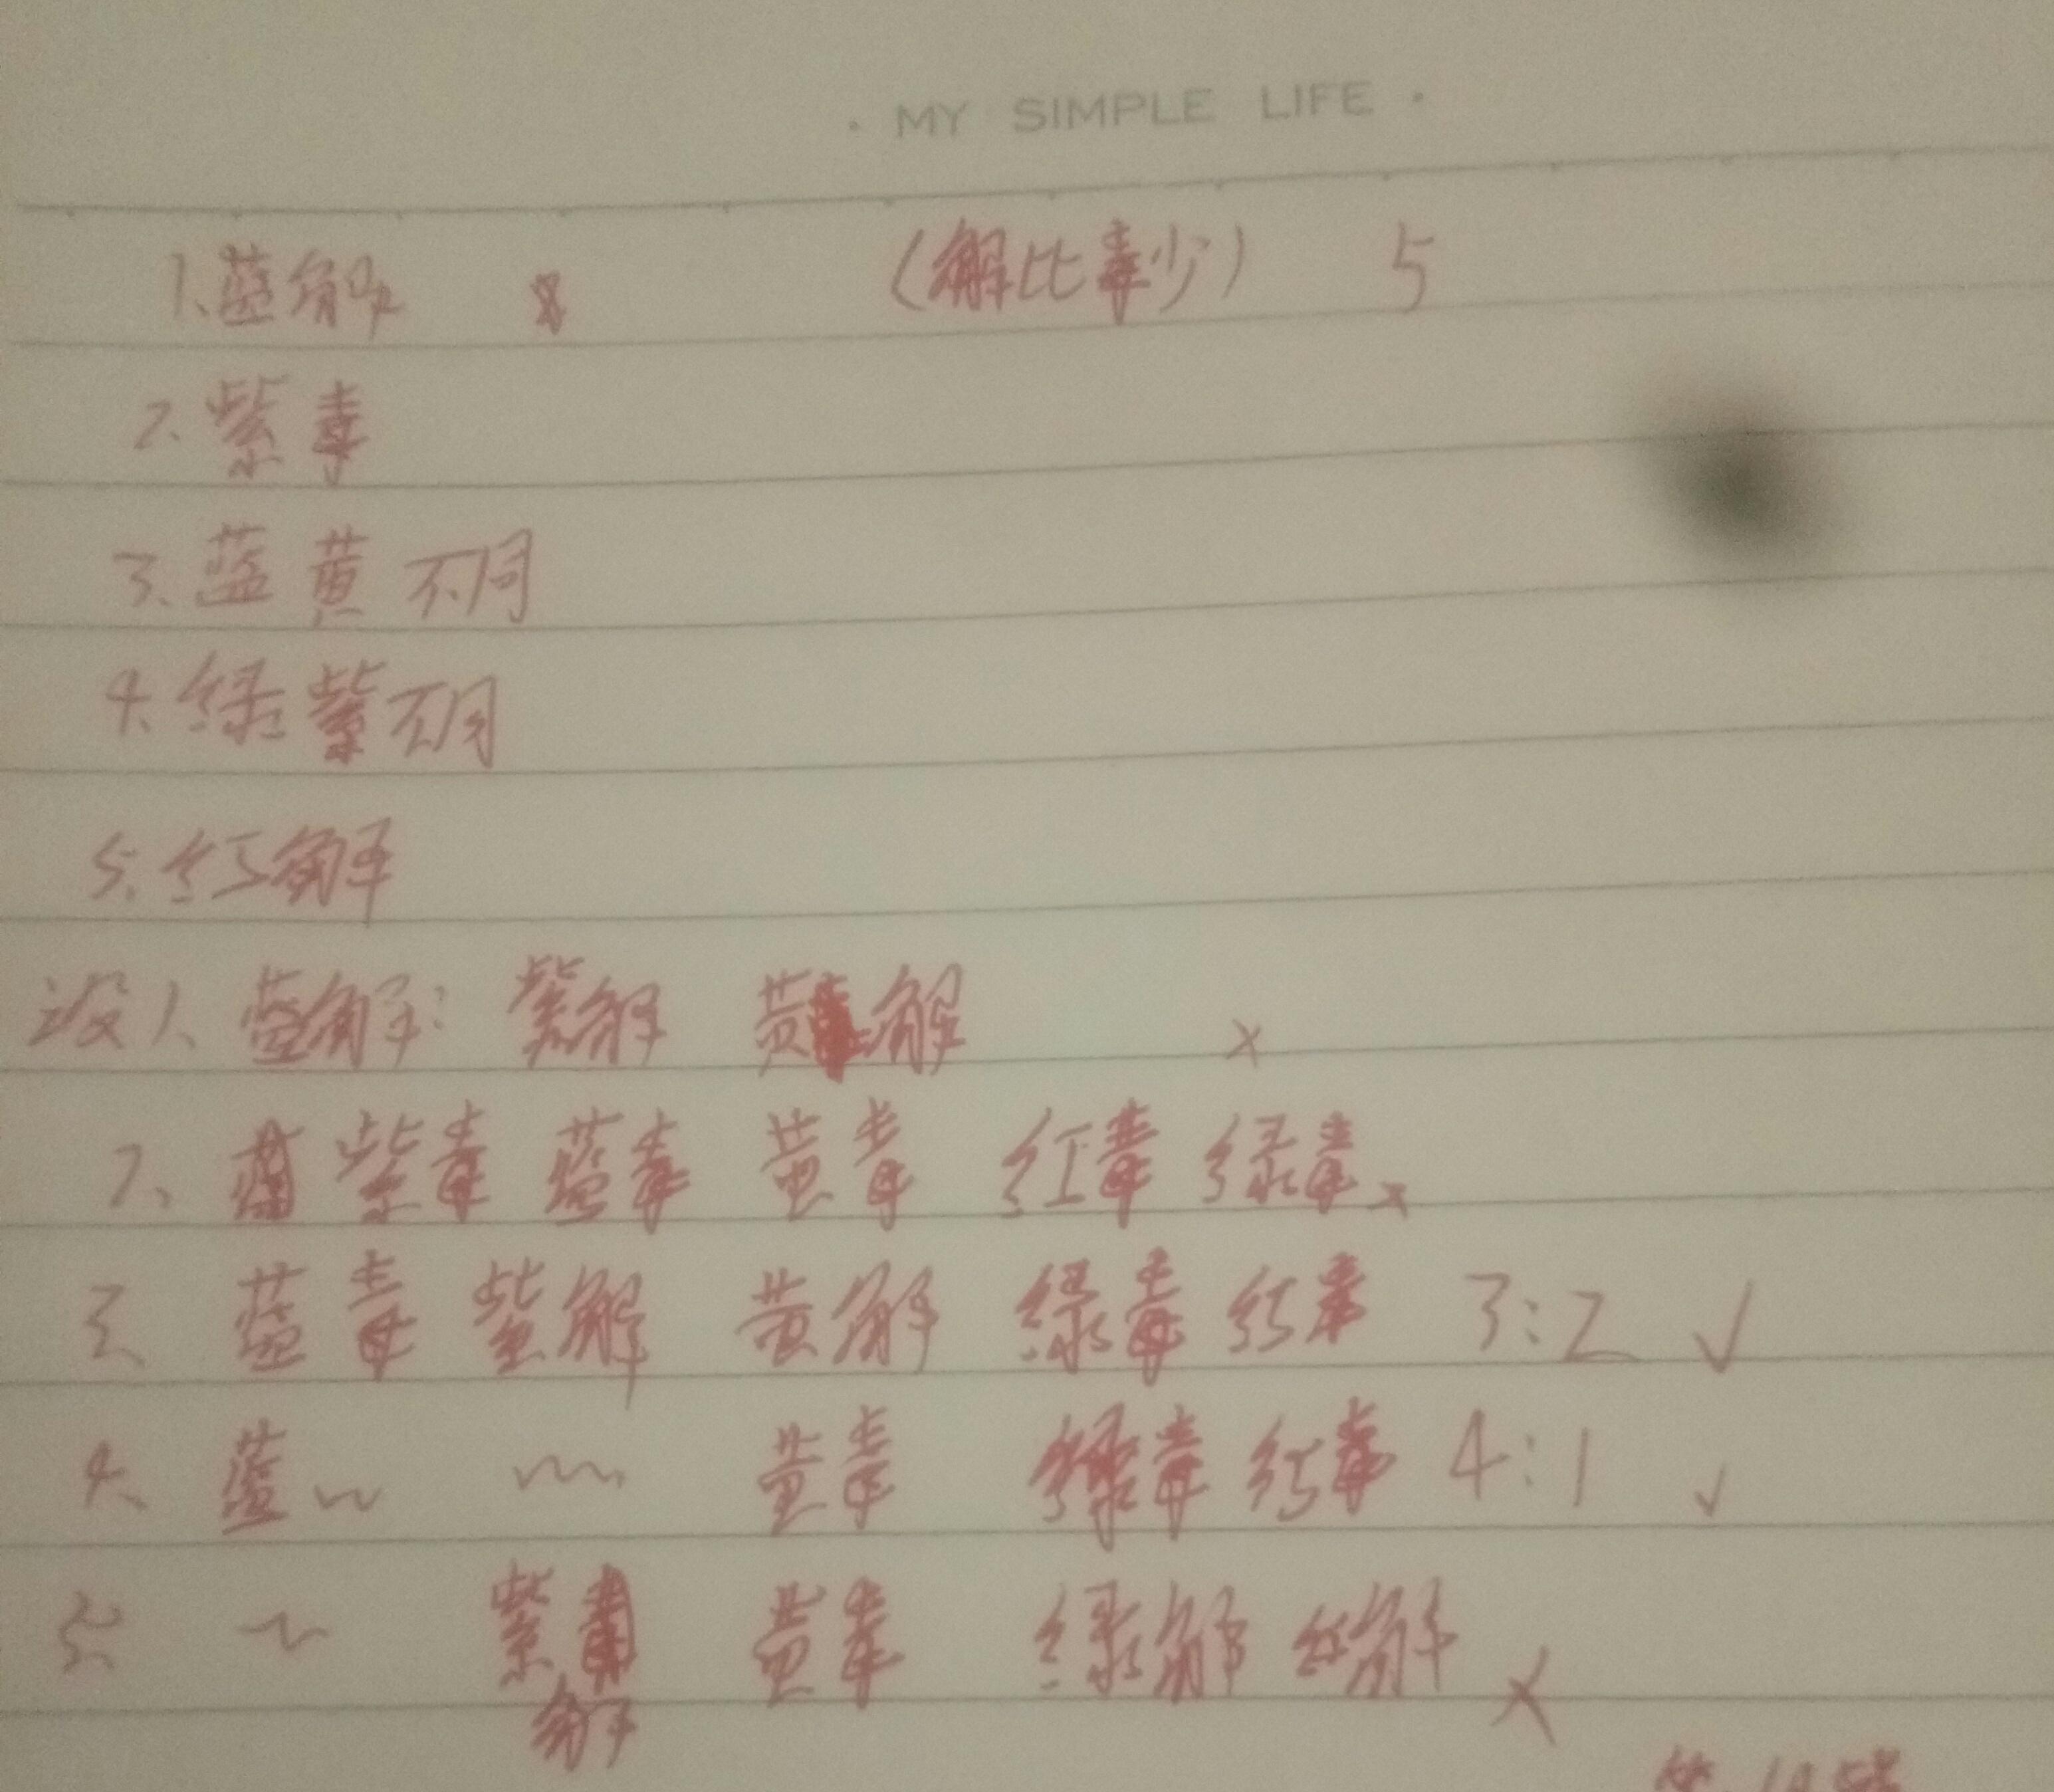 · MY SIMPLE LIFE ·
1、蓝解 (解比毒少) 5
2、紫毒
3、蓝黄不同
4、绿紫不同
5、红解
设1、蓝解: 紫解 黄解 ×
2、紫毒 蓝毒 黄毒 红毒 绿毒 ×
3、蓝毒 紫解 黄解 绿毒 红毒 3:2 √
4、蓝~ ~ 黄毒 绿毒 红毒 4:1 √
5、~ 紫解 黄毒 绿解 红解 ×